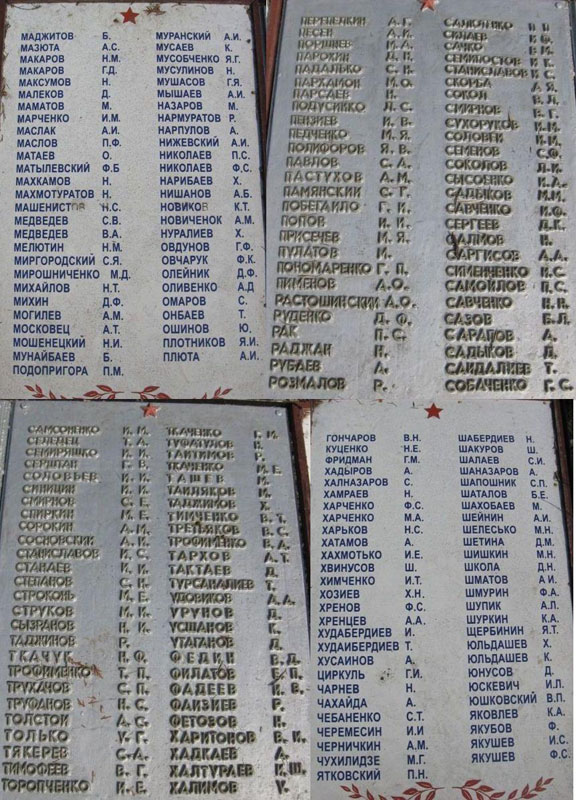 МАДЖИТОВ Б.
МАЗЮТА А.С.
МАКАРОВ Н.М.
МАКАРОВ Г.Д.
МАКСУМОВ Н.
МАЛЕКОВ Д.
МАМАТОВ М.
МАРЧЕНКО И.М.
МАСЛАК А.И.
МАСЛОВ П.Ф.
МАТАЕВ О.
МАТЫЛЕВСКИЙ Ф.Б
МАХКАМОВ Н.
МАХМОТУРАТОВ Н.
МАШЕНИСТОВ Н.С.
МЕДВЕДЕВ С.В.
МЕДВЕДЕВ В.А.
МЕЛЮТИН Н.М.
МИРГОРОДСКИЙ С.Я.
МИРОШНИЧЕНКО М.Д.
МИХАЙЛОВ Н.Т.
МИХИН Д.Ф.
МОГИЛЕВ А.М.
МОСКОВЕЦ А.Т.
МОШЕНЕЦКИЙ Н.И.
МУНАЙБАЕВ Б.
ПОДОПРИГОРА П.М.
МУРАНСКИЙ А.И.
МУСАЕВ К.
МУСОБЧЕНКО Я.Г.
МУСУЛИНОВ Н.
МУШАСОВ Г.Я.
МЫШАЕВ А.И.
НАЗАРОВ М.
НАРМУРАТОВ Р.
НАРПУЛОВ А.
НИЖЕВСКИЙ А.И.
НИКОЛАЕВ П.С.
НИКОЛАЕВ Ф.С.
НАРИБАЕВ Х.
НИШАНОВ А.Б.
НОВИКОВ К.Т.
НОВИЧЕНОК А.М.
НУРАЛИЕВ Х.
ОВДУНОВ Г.Ф.
ОВЧАРУК Ф.К.
ОЛЕЙНИК Д.Ф.
ОЛИВЕНКО А.Д
ОМАРОВ С.
ОНБАЕВ Т.
ОШИНОВ Ю.
ПЛОТНИКОВ Я.И.
ПЛЮТА А.И.
ПЕРЕПЕЛКИН А.Г.
ПЕСЕН А.И.
ПОРШНЕВ И.А.
ПАРОХИН Д.П.
ПАДАЛЬКО С.Н.
ПАРХАМОН М.О.
ПАРСАЕВ Н.
ПОДУСИНКО Л.С.
ПЕНЗИЕВ И.В.
ПЕДЧЕНКО М.Я.
ПОЛИФОРОВ Я.В.
ПАВЛОВ С.А.
ПАСТУХОВ А.М.
ПАМЯНСКИЙ С.Г.
ПОБЕГАЙЛО Г.И.
ПОПОВ И.И.
ПРИСЕЧЕВ М.Я.
ПУЛАТОВ М.
ПОНОМАРЕНКО Г.П.
ПИМЕНОВ А.О.
РАСТОШИНСКИЙ А.О.
РУДЕНКО Д.Ф.
РАК П.С.
РАДЖАН Н.
РУБАЕВ А.
РОЗМАЛОВ Р.
СИЛАЕВ И.Ф.
САЧКО В.М.
СЕМИПОСТОВ И.К.
СТАНИСЛАВОВ И.С.
СКОРБА А.Я.
СОКОЛ В.Л.
СМИРНОВ В.Г.
СУХОРУКОВ И.М.
СОЛОВЕЙ И.М.
СЕМЕНОВ С.Ф.
СОКОЛОВ Л.И.
СЫСОЕНКО И.А.
САДЫКОВ М.М.
САВЧЕНКО И.Ф.
СЕРГЕЕВ Д.К.
САЛМОВ Н.
САРГИСОВ А.А.
СИМЕНЧЕНКО И.С.
САМОЙЛОВ П.С.
САВЧЕНКО Н.Н.
САЗОВ Б.Л.
САРАПОВ А.
САДЫКОВ Д.
САИДАЛИЕВ Т.
СОБАЧЕНКО Г.С.
САМСОНЕНКО И.М.
СЕЛЕДЕЦ Т.А.
СЕМИРЯШКО Г.И.
СЕРШТАН Г.Е.
СОЛОВЬЕВ И.И.
СИПИЦИН И.И.
СМИРНОВ С.Е.
СПИРКИН М.
СОРОКИН А.М.
СОСНОВСКИЙ А.И.
СТАНИСЛАВОВ И.С.
СТАНАЕВ И.И.
СТЕПАНОВ С.Н.
СТРОКОНЬ М.Е.
СТРУКОВ М.М.
СЫЗРАНОВ Н.И.
ТАДЖИНОВ Р.
ТКАЧУК Н.Ф.
ТРОФИМЕНКО Т.П.
ТРУХАЧОВ С.П.
ТРУФАНОВ Н.С.
ТОЛСТОЙ А.С.
ТОЛЬКО У.Г.
ТЯКЕРЕВ С.А.
ТИМОФЕЕВ В.Г.
ТОРОПЧЕНКО И.Е.
ТКАЧЕНКО Г.М.
ТУФАТУЛОВ И.
ТАИТИМОВ Р.
ТКАЧЕНКО М.Е.
ТАШЕВ М.
ТАИЛЯКОВ М.
ТАДЖИМОВ Х.
ТИМЧЕНКО В.Т.
ТРЕТЬЯКОВ В.С.
ТРОФИМЕНКО В.А.
ТАРХОВ А.Т.
ТАКТАЕВ Д.
ТУРСАНАЛИЕВ Т.
УДОВИКОВ А.А.
УРУНОВ Д.
УСШАНОВ К.
УТАГАНОВ Д.
ФЕДИН В.Д.
ФИЛАТОВ Б.П.
ФАДЕЕВ И.В.
ФАИЗИЕВ Р.
ФЕТОВОВ Н.
ХАРИТОНОВ В.И.
ХАДКАЕВ А.
ХАЛТУРАЕВ К.Ш.
ХАЛИМОВ У.
ГОНЧАРОВ В.Н.
КУЦЕНКО Н.Е.
ФРИДМАН Г.М.
ХАДЫРОВ А.
ХАЛНАЗАРОВ С.
ХАМРАЕВ Н.
ХАРЧЕНКО Ф.С.
ХАРЧЕНКО М.А.
ХАРЬКОВ Н.С.
ХАТАМОВ А.
ХАХМОТЬКО И.Е.
ХВИНУСОВ Ш.
ХИМЧЕНКО И.Т.
ХОЗИЕВ Х.Н.
ХРЕНОВ Ф.С.
ХРЕНЦЕВ А.А.
ХУДАБЕРДИЕВ И.
ХУДАИБЕРДИЕВ Т.
ХУСАИНОВ А.
ЦИРКУЛЬ Г.И.
ЧАРНЕВ Н.
ЧАХАЙДА А.
ЧЕБАНЕНКО С.Т.
ЧЕРЕМЕСИН И.И
ЧЕРНИЧКИН А.М.
ЧУХИЛИДЗЕ М.Г.
ЯТКОВСКИЙ П.Н.
ШАБЕРДИЕВ Н.
ШАКУРОВ Ш.
ШАЛАЕВ С.И.
ШАНАЗАРОВ А.
ШАПОШНИК С.П.
ШАТАЛОВ Б.Е.
ШАХОБАЕВ М.
ШЕЙНИН А.И.
ШЕЛЕСЬКО М.Н.
ШЕТИНА Д.М.
ШИШКИН М.Н.
ШКОЛА Д.Н.
ШМАТОВ А.И.
ШМУРИН Ф.А.
ШУПИК А.Л.
ШУРКИН К.А.
ЩЕРБИНИН Я.Т.
ЮЛЬДАШЕВ Х.
ЮЛЬДАШЕВ К.
ЮНУСОВ Д.
ЮСКЕВИЧ И.Л.
ЮШКОВСКИЙ В.П.
ЯКОВЛЕВ К.А.
ЯКУБОВ Ф.
ЯКУШЕВ И.С.
ЯКУШЕВ Ф.С.